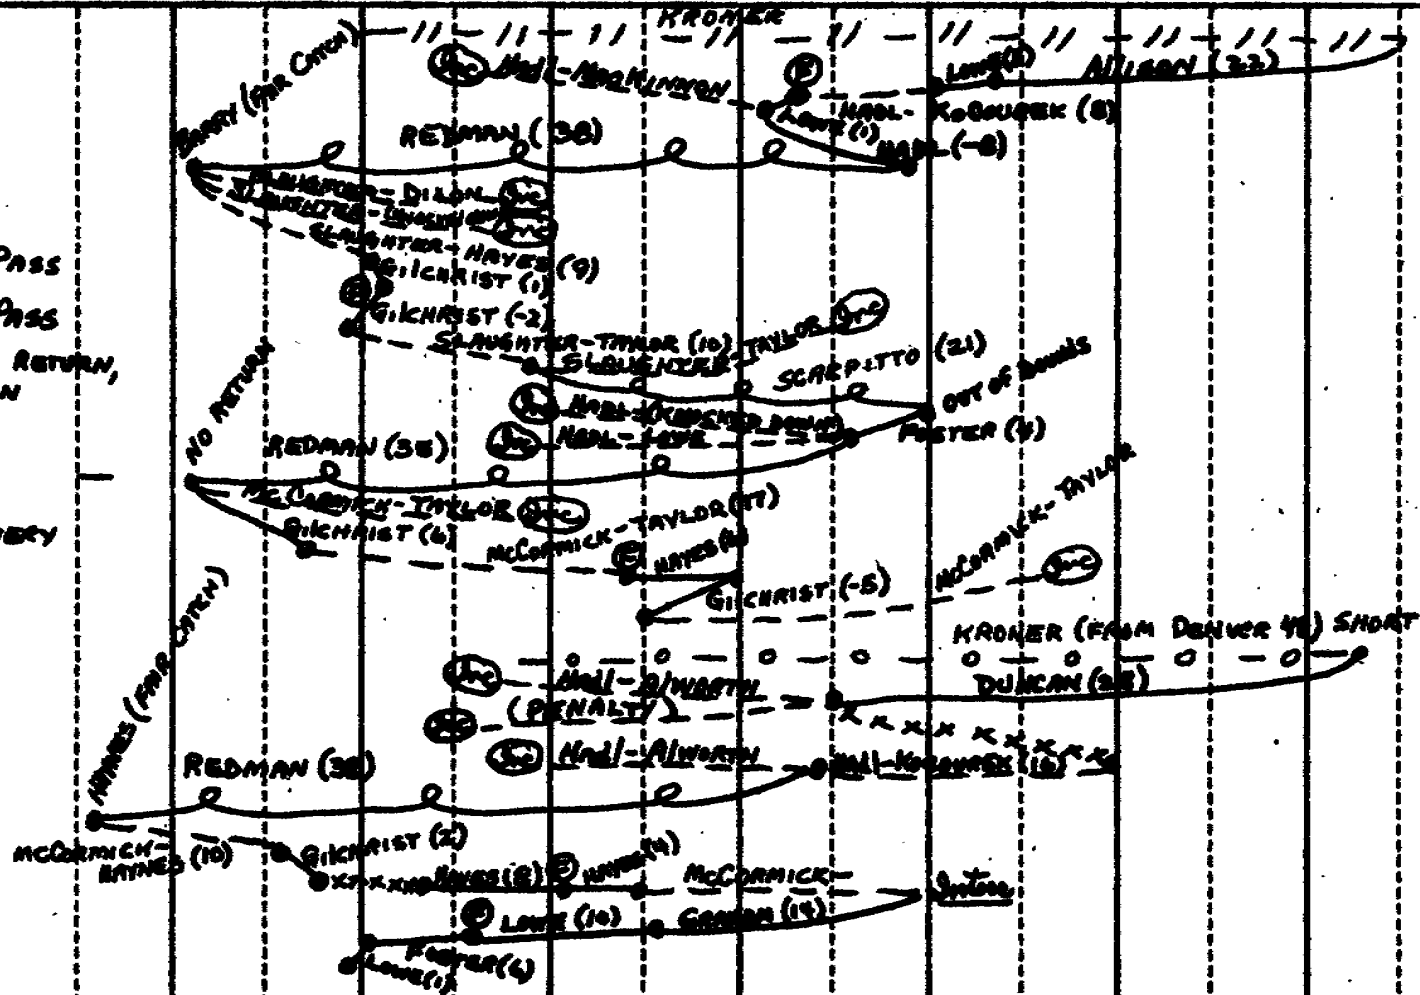 KRONER
BARRY (FAIR CATCH)
Inc
Hadl-MacKinnon
F
LOWE (2)
Allison (22)
HADL-KOCOUREK (8)
LOWE (1)
REDMAN (38)
HADL (-8)
SLAUGHTER-DILON Inc
SLAUGHTER- Inc
SLAUGHTER-HAYES (9)
PASS
GILCHRIST (1)
F
GILCHRIST (-2)
PASS
SLAUGHTER-TAYLOR (10)
SLAUGHTER-TAYLOR Inc
RETURN,
N
NO RETURN
SCARPITTO (21)
OUT OF BOUNDS
Inc HADL-(KNOCKED DOWN)
Inc HADL-LOWE
FOSTER (4)
REDMAN (35)
McCORMICK-TAYLOR Inc
GILCHRIST (6)
McCORMICK-TAYLOR (17)
F
HAYES (6)
GILCHRIST (-5)
McCORMICK-TAYLOR
Inc
KRONER (FROM DENVER 48) SHORT
HAYNES (FAIR CATCH)
Inc
Hadl-Alworth
DUNCAN (25)
Inc
(PENALTY)
Inc Hadl-Alworth
Hadl-KOCOUREK (16)
REDMAN (38)
McCORMICK-
HAYNES (10)
GILCHRIST (2)
HAYES (8)
F
HAYES (4)
McCORMICK-
Inter
F
LOWE (10)
GRAHAM (14)
FOSTER (6)
LOWE (1)